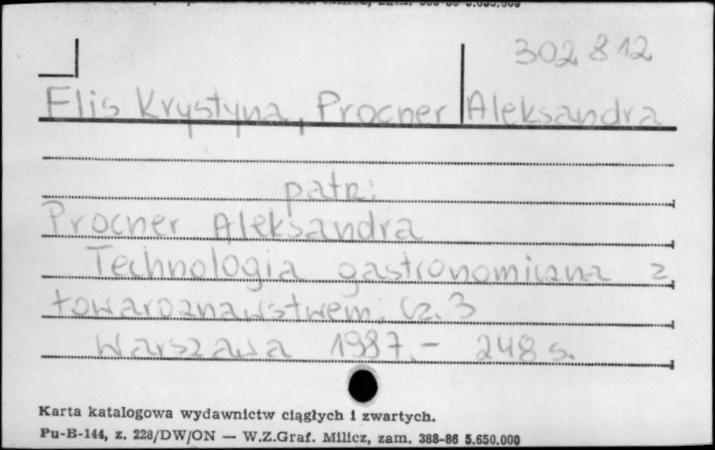 302812
Elis Krystyna, Procner Aleksandra
patrz:
Procner Aleksandra
Technologia gastronomiczna z
towaroznawstwem. Cz. 3
Warszawa 1987.- 248 s.
Karta katalogowa wydawnictw ciągłych i zwartych.
Pu-B-144, z. 228/DW/ON — W.Z.Graf. Milicz, zam. 388-86 5.650.000